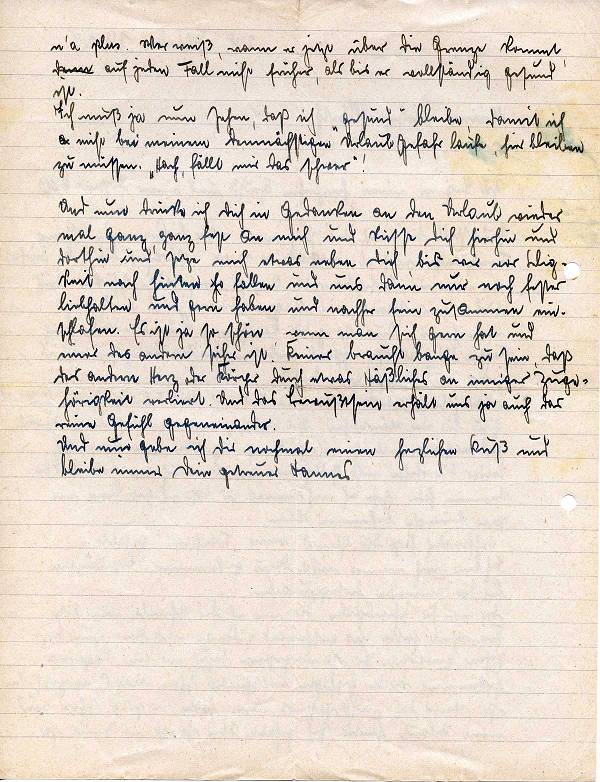 n'a plus. Wer weiß, wann er jetzt über die Grenze kommt,
auf jeden Fall nicht früher, als bis er vollständig gesund
ist.
Ich muß ja nun sehen, daß ich "gesund" bleibe damit ich
nicht bei meinem demnächstigen Urlaub Gefahr laufe, hier bleiben
zu müssen. „Hach, fällt mir das schwer"!
Und nun drücke ich dich in Gedanken an den Urlaub wieder
mal ganz, ganz fest an mich und küsse dich hierhin und
dorthin und setze mich etwas neben dich, bis wir vor
nach hinten fallen und uns dann nur noch fester
liebhalten und gern haben und nachher fein zusammen ein-
schlafen. Es ist ja so schön wenn man sich gern hat und
einer des andern sicher ist. Keiner braucht bange zu sein, daß
des andern Herz oder Körper durch etwas Häßliches an inniger Zuge-
hörigkeit verliert. Und das Bewußtsein erhält uns ja auch das
reine Gefühl gegeneinander.
Und nun gebe ich dir nochmal einen herzlichen Kuß und
bleibe immer Dein getreuer Hannes